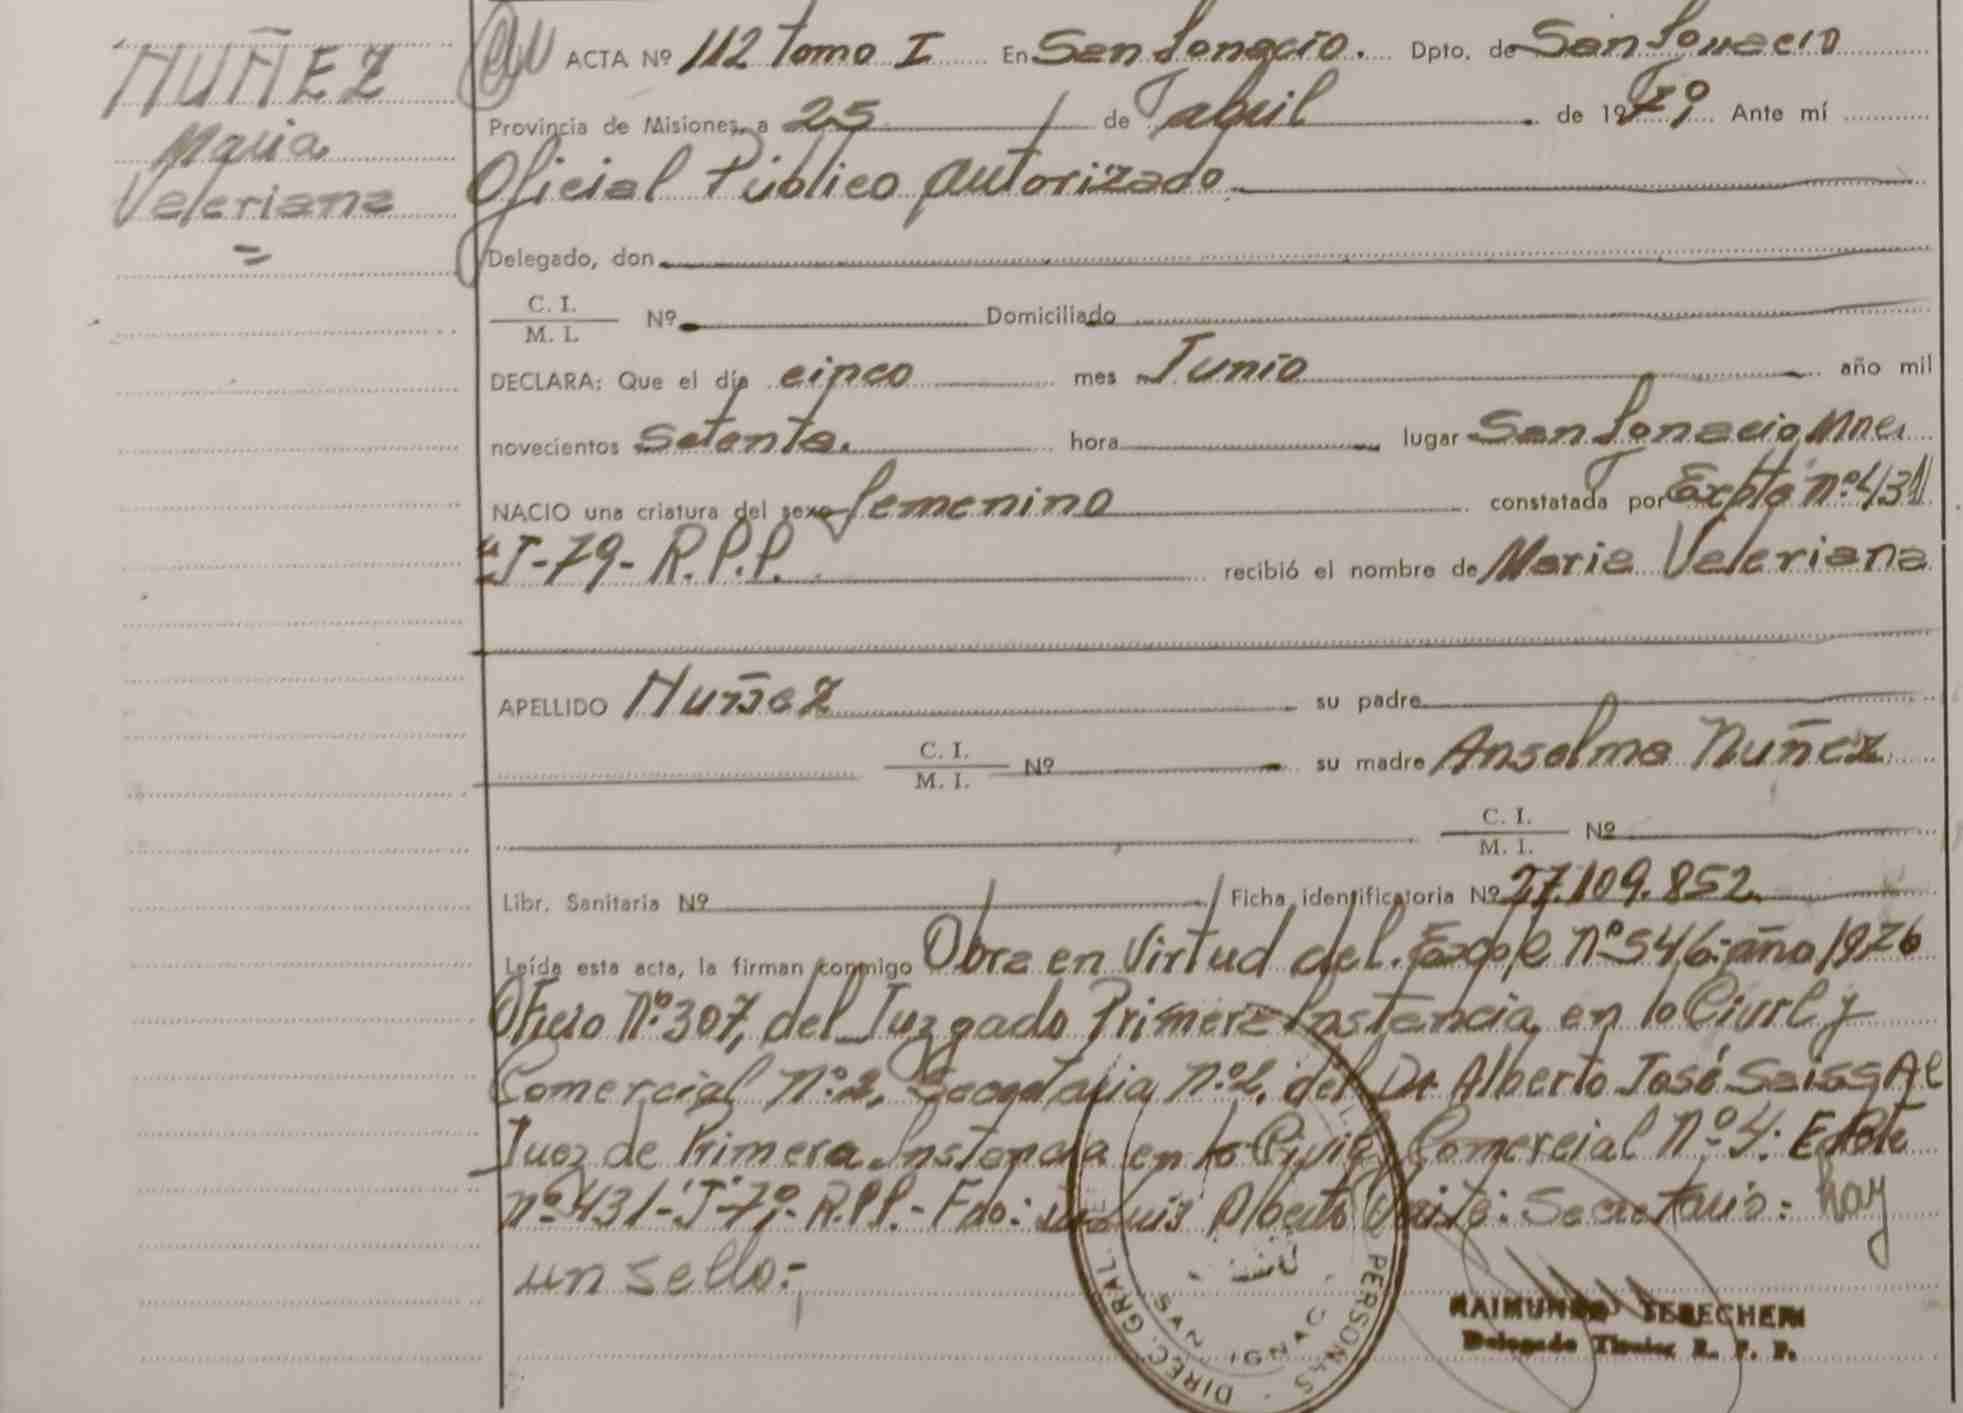 NUÑEZ
Maria
Valeriana
ACTA Nº 112 Tomo I En San Ignacio. Dpto. de San Ignacio
Provincia de Misiones, a 25 de abril de 1979. Ante mí
Oficial Público autorizado
Delegado, don
C. I.
M. I. Nº Domiciliado
DECLARA: Que el día cinco mes Junio año mil
novecientos Setenta. hora lugar San Ignacio Mnes
NACIO una criatura del sexo femenino constatada por Expte nº 431
"J-79- R.P.P. recibió el nombre de Maria Valeriana
APELLIDO Nuñez su padre
C. I.
M. I. Nº su madre Anselma Nuñez
C. I.
M. I. Nº
Libr. Sanitaria Nº Ficha identificatoria Nº 27.109.852
Leída esta acta, la firman conmigo Obra en Virtud del. Nº 546-año 1976
Oficio Nº 307, del Juzgado Primera Instancia en lo Civil y
Comercial Nº 2, Secretaria Nº 2. del Dr Alberto José
Juez de Primera Instancia en lo Civil Comercial Nº 4: Expte
nº 431-"J-79- R.P.P.- Fdo: Luis Alberto Secretario: hay
un sello:-
DIREC. GRAL. PERSONAS
SAN IGNACIO
RAIMUNDO
Delegado Titular R. P. P.